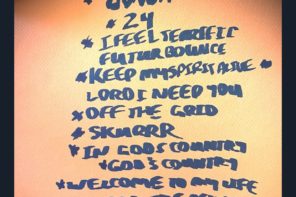 * 24
* I FEEL TERRIFIC
FUTURBOUNCE
* KEEP MY SPIRIT ALIVE *
LORD I NEED YOU
* OFF THE GRID
* SKURRR
* IN GODS COUNTRY
* GOD'S COUNTRY
* WELCOME TO MY LIFE